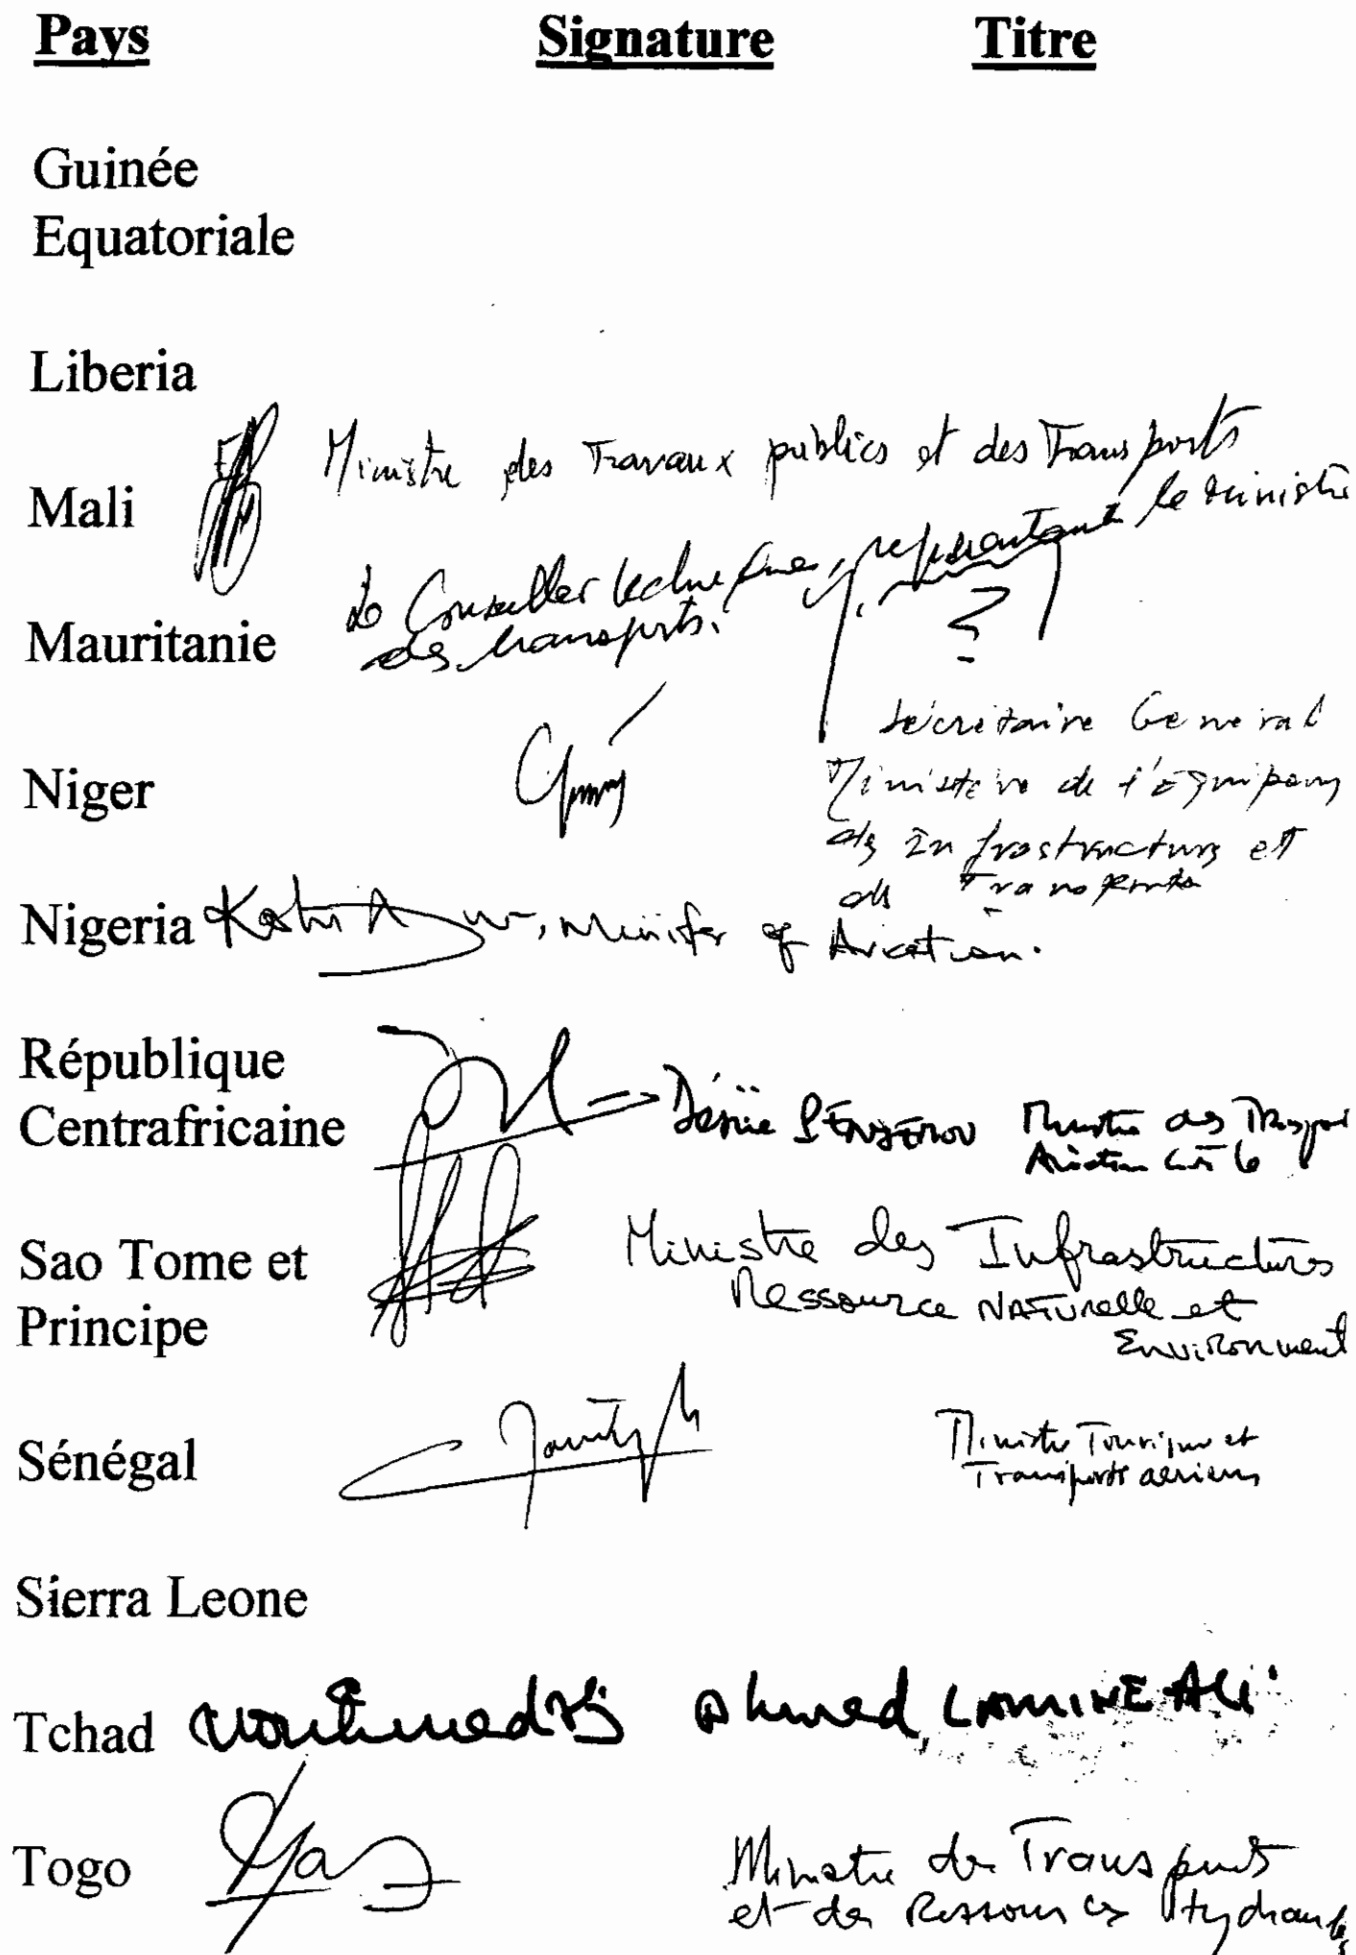 Pays Signature Titre
Guinée
Equatoriale
Liberia
Ministre des Travaux publics et des Transports
Mali
Le Conseiller technique, représentant le Ministre
des transports.
?
Mauritanie
Secrétaire General
Niger
Ministère de l'Equipemt
des Infrastructures et
des Transports
Nigeria Minister of Aviation.
République
Centrafricaine Désiré Ministre des Transport
Aviation
Sao Tome et
Principe
Ministre des Infrastructures
Ressource NATurelle et
Environment
Sénégal
Ministre Tourisme et
Transports aeriens
Sierra Leone
Tchad Ahmed LAMINE ALi
Togo
Ministre des Transports
et des Ressources Hydrauliques